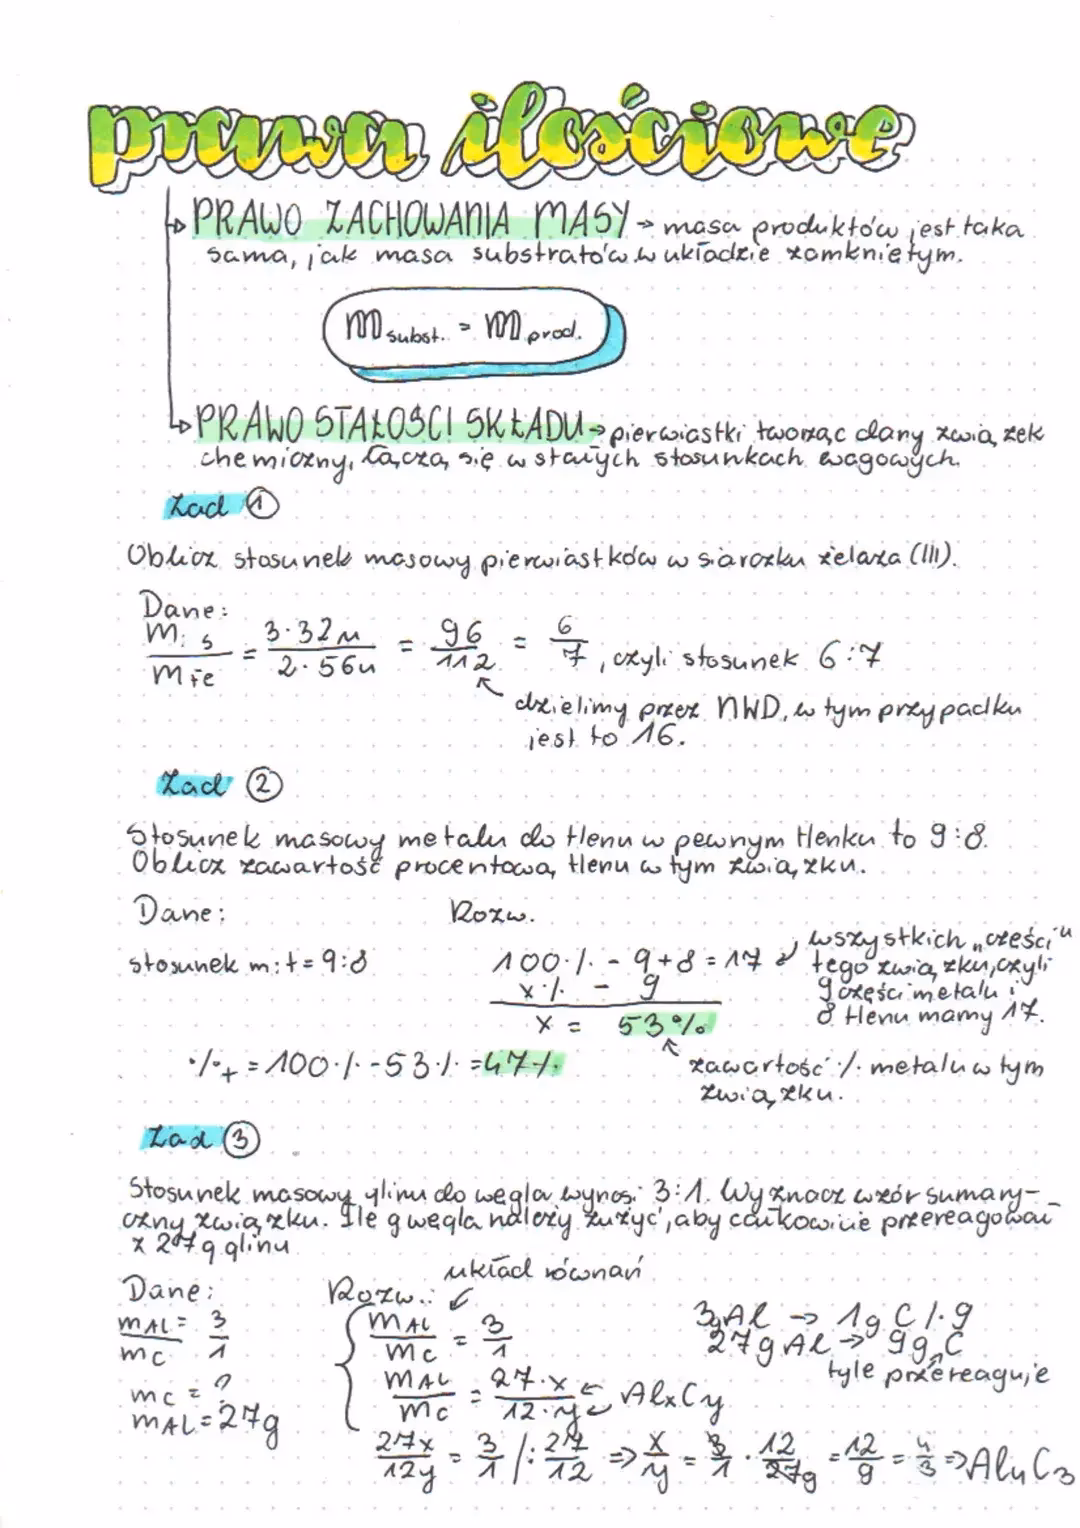 prawa ilościowe
↳ PRAWO ZACHOWANIA MASY → masa produktów jest taka
sama, jak masa substratów w układzie zamkniętym.
m subst. = m prod.
↳ PRAWO STAŁOŚCI SKŁADU → pierwiastki tworząc dany związek
chemiczny, łączą się w stałych stosunkach wagowych.
Zad ①
Oblicz stosunek masowy pierwiastków w siarczku żelaza (III).
Dane:
m S / m Fe = 3·32u / 2·56u = 96/112 = 6/7, czyli stosunek 6:7
dzielimy przez NWD, w tym przypadku
jest to 16.
Zad ②
Stosunek masowy metalu do tlenu w pewnym tlenku to 9:8.
Oblicz zawartość procentową tlenu w tym związku.
Dane: Rozw.
stosunek m:t = 9:8
100% - 9+8 = 17
x% - 9
x = 53%
wszystkich „części"
tego związku, czyli
9 części metalu i
8 tlenu mamy 17.
%t = 100% - 53% = 47%
zawartość % metalu w tym
związku.
Zad ③
Stosunek masowy glinu do węgla wynosi 3:1. Wyznacz wzór sumary-
czny związku. Ile g węgla należy zużyć, aby całkowicie przereagował
z 27g glinu
Dane:
mAL / mC = 3/1
mC = ?
mAL = 27g
Rozw.: układ równań
mAL / mC = 3/1
mAL / mC = 27·x / 12·y AlxCy
3gAl → 1g C /·9
27g Al → 9g C
tyle przereaguje
27x/12y = 3/1 /: 27/12 => x/y = 3/1 · 12/27 = 12/9 = 4/3 => Al4C3